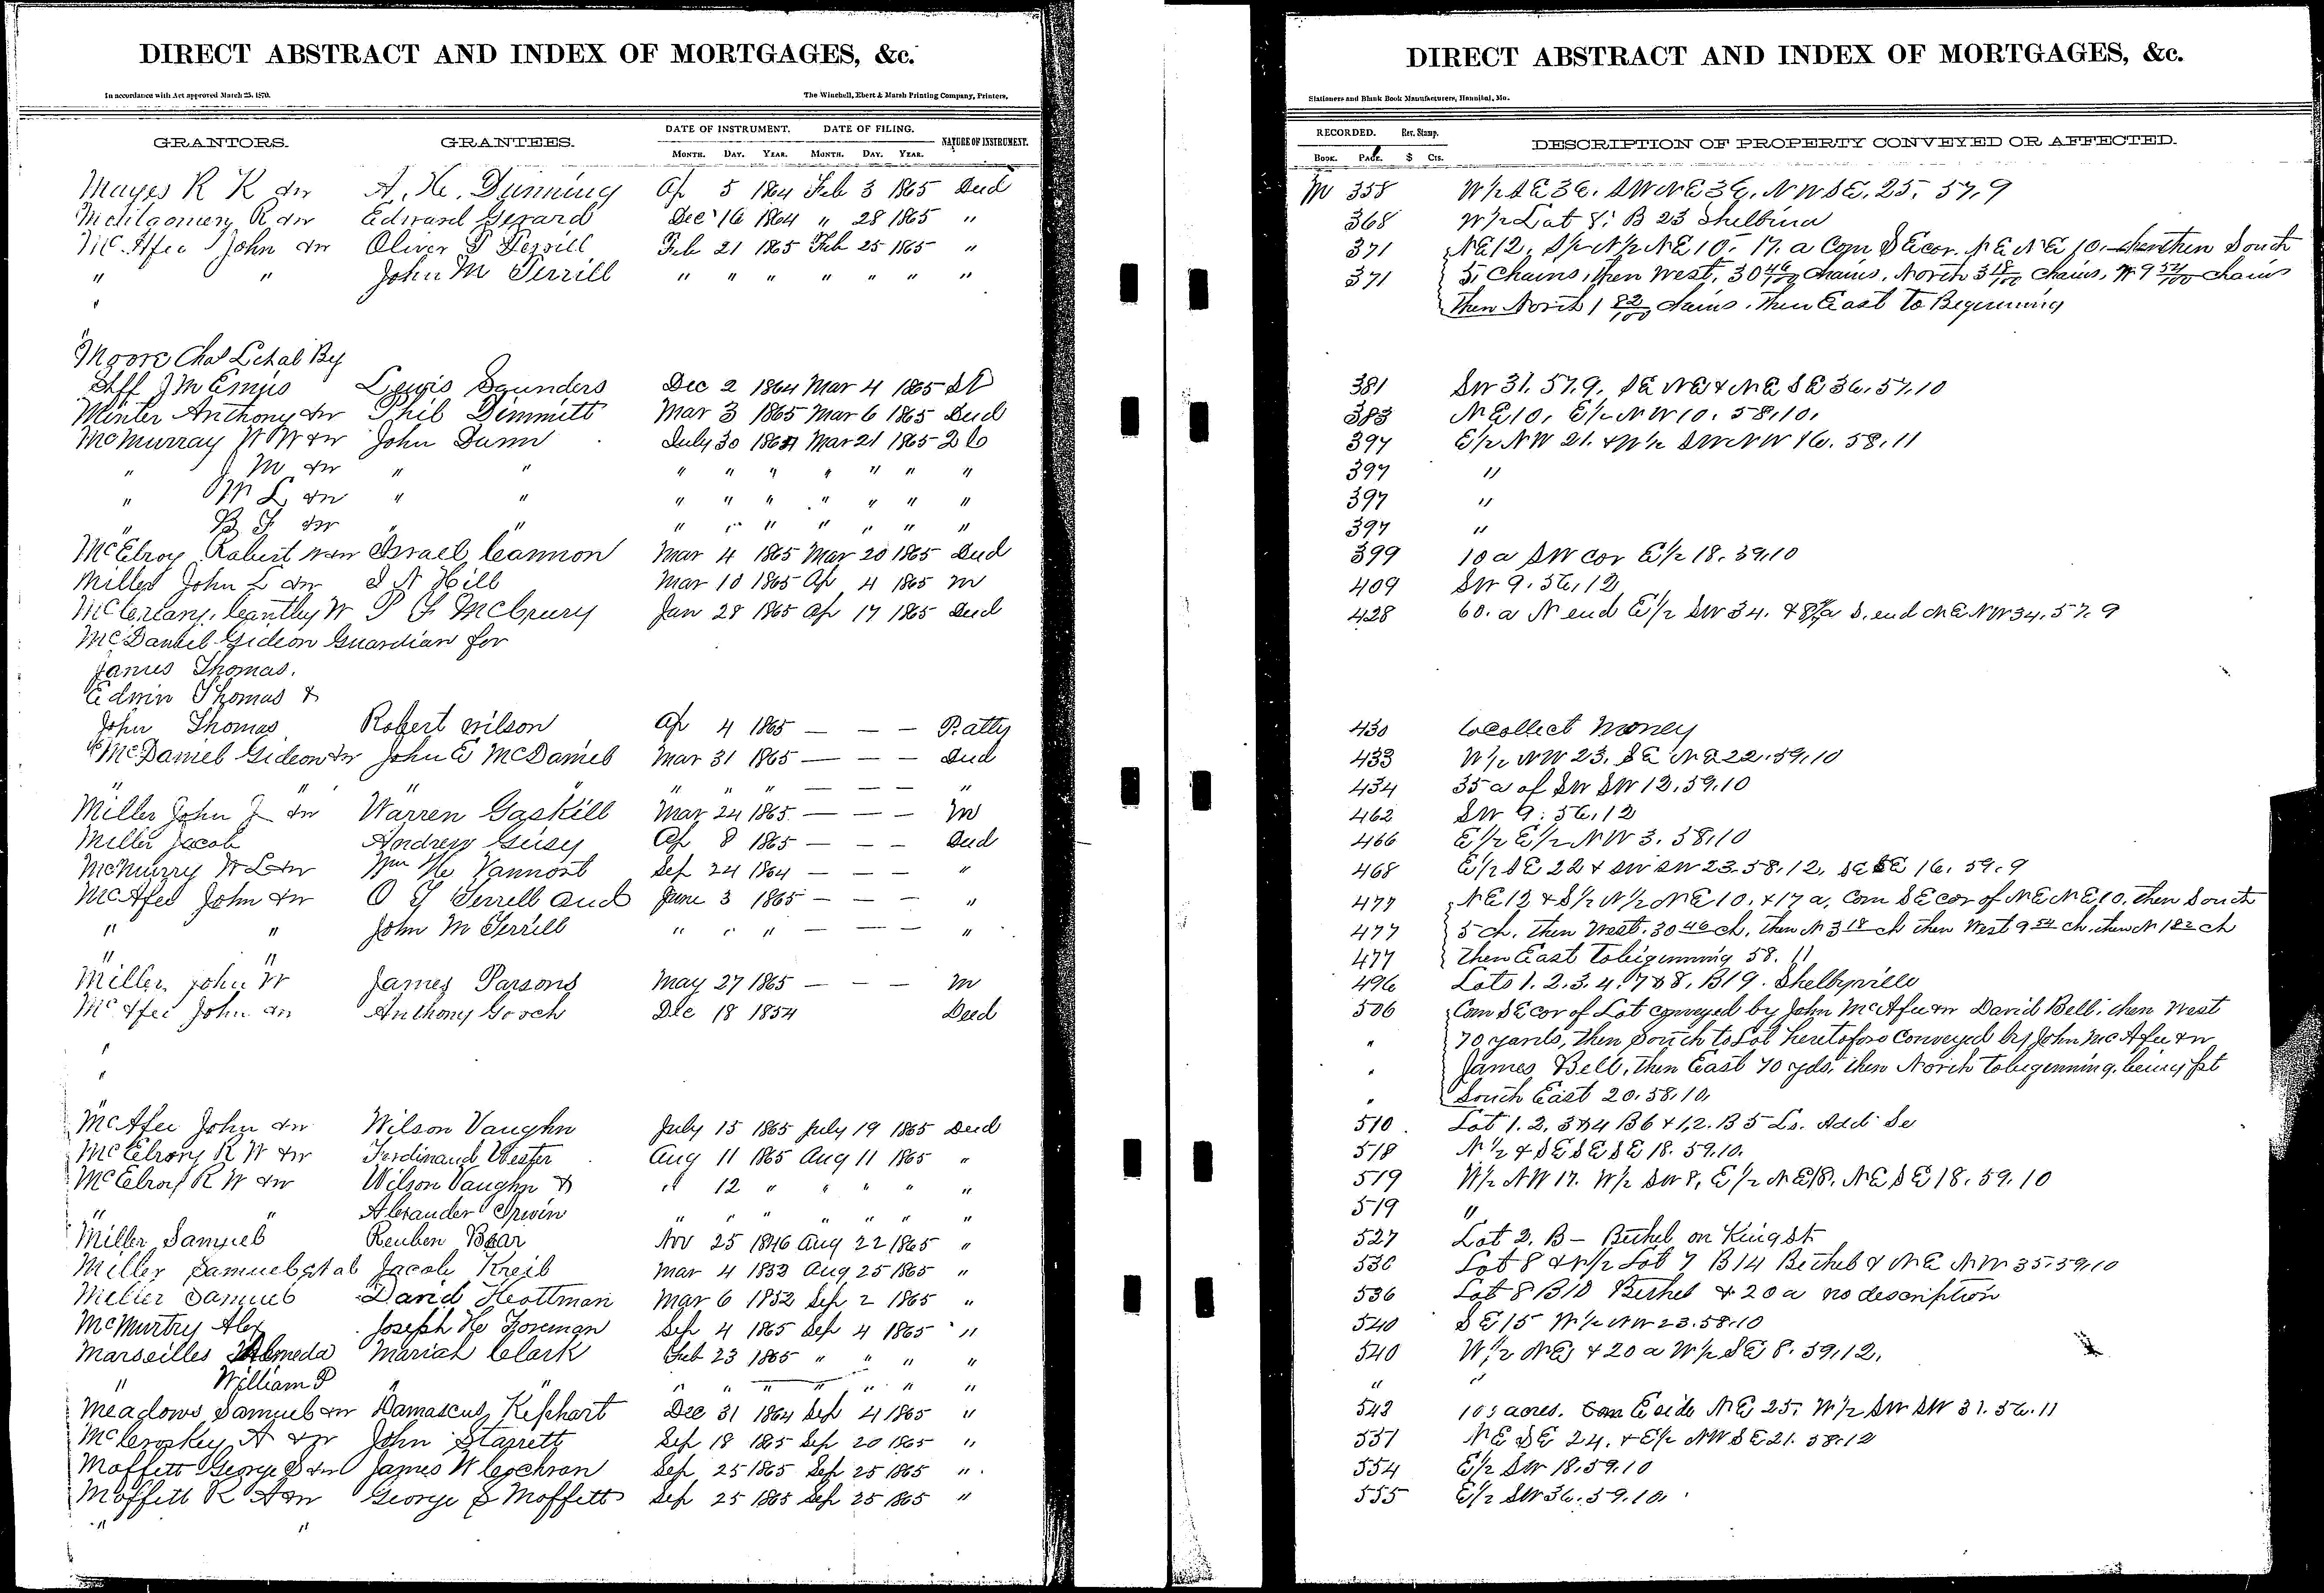 DIRECT ABSTRACT AND INDEX OF MORTGAGES, &c.
In accordance with Act approved March 25, 1870.
The Winchell, Ebert & Marsh Printing Company, Printers,
GRANTORS. GRANTEES. DATE OF INSTRUMENT. DATE OF FILING. NATURE OF INSTRUMENT.
MONTH. DAY. YEAR. MONTH. DAY. YEAR.
Mayes R K &w A. H. Dunning Ap 5 1864 Feb 3 1865 Deed
R &w Edward Gerard Dec 16 1864 " 28 1865 "
Mc.Afee John &w Oliver P Terrill Feb 21 1865 Feb 25 1865 "
" " John M Terrill " " " " " " "
"
"
Moore Chas Letal By
Shff J M Ennis Lewis Saunders Dec 2 1864 Mar 4 1865 SD
Minter Anthony &w Phil Dimmitt Mar 3 1865 Mar 6 1865 Deed
McMurray W W &w John Dunn July 30 Mar 21 1865
" J M &w " " " " " " " " "
" M L &w " " " " " " " " "
" B F &w " " " " " " " " "
McElroy Robert &w Israel Cannon Mar 4 1865 Mar 20 1865 Deed
Miller John L &w S N Hill Mar 10 1865 Ap 4 1865 M
W P F McCrury Jan 28 1865 Ap 17 1865 Deed
McDaniel Gideon Guardian for
James Thomas.
Edwin Thomas &
John Thomas Robert Wilson Ap 4 1865 — — — P.Atty
McDaniel Gideon &w John E McDaniel Mar 31 1865 — — — Deed
" " " " " " — — — "
Miller John J &w Warren Gaskill Mar 24 1865 — — — M
Miller Jacob Andrew Gusy Ap 8 1865 — — — Deed
McMurry W L &w Wm H Vannort Sep 24 1864 — — — "
McAfee John &w O T Terrell and June 3 1865 — — — "
" " John M Terrill " " " — — — "
" "
Miller John W James Parsons May 27 1865 — — — M
McAfee John &w Anthony Gooch Dec 18 1854 Deed
"
"
"
McAfee John &w Wilson Vaughn July 15 1865 July 19 1865 Deed
McElrory R W &w Ferdinand Wester Aug 11 1865 Aug 11 1865 "
McElroy R W &w Wilson Vaughn & " 12 " " " " "
" " Alexander Irwin " " " " " " "
Miller Samuel Reuben Bear Nov 25 1846 Aug 22 1865 "
Miller Samuel et al Jacob Kreil Mar 4 1853 Aug 25 1865 "
Miller Samuel David Hottman Mar 6 1852 Sep 2 1865 "
McMurtry Alex Joseph H Foreman Sep 4 1865 Sep 4 1865 "
Marseilles Almeda Mariah Clark Feb 23 1865 " " " "
" William P " " " " " " " " "
Meadows Samuel &w Damascus Kephart Dec 31 1864 Sep 4 1865 "
McCroskey A &w John Starrett Sep 18 1865 Sep 20 1865 "
Moffett George S &w James W Cochran Sep 25 1865 Sep 25 1865 "
Moffett R A &w George S Moffett Sep 25 1865 Sep 25 1865 "
" "
DIRECT ABSTRACT AND INDEX OF MORTGAGES, &c.
Stationers and Blank Book Manufacturers, Hannibal, Mo.
RECORDED. Rev. Stamp. DESCRIPTION OF PROPERTY CONVEYED OR AFFECTED.
BOOK. PAGE. $ Cts.
M 358 W½ SE 36. SW NE 36, NW SE, 25. 57, 9
368 W½ Lot 8. B 23 Shelbina
371 NE 12, S½ N½ NE 10. 17. a Com SE cor. NE NE 10. then South
371 5 Chains, then West, 30 46/100 chains, North 3 18/100 chains, W 9 52/100 chains
then North 1 82/100 chains, then East to Beginning
381 SW 31. 57. 9. SE NE & NE SE 36. 57. 10
383 NE 10, E½ NW 10. 58. 10.
397 E½ NW 21. & W½ SW NW 16. 58. 11
397 "
397 "
397 "
399 10 a SW cor E½ 18. 59. 10
409 SW 9. 56, 12
428 60. a N end E½ SW 34. & S. end NE NW 34. 57. 9
430 To collect money
433 W½ NW 23. SE NE 22. 59. 10
434 35 a of SW SW 12. 59. 10
462 SW 9. 56, 12
466 E½ E½ NW 3. 58. 10
468 E½ SE 22 & SW SW 23. 58. 12, SE SE 16. 59. 9
477 NE 12 & S½ N½ NE 10. & 17 a. Com SE cor of NE NE 10. then South
477 5 ch. then West. 30 46 ch, then N 3 18 ch then West 9 54 ch. then N 1 82 ch
477 then East to beginning 58. 11
496 Lots 1. 2. 3. 4. 7 & 8. B 19. Shelbyville
506 Com SE cor of Lot conveyed by John McAfee &w David Bell. then West
" 70 yards, then South to Lot heretofore Conveyed by John McAfee &w
" James Bell, then East 70 yds. then North to beginning. being pt
" South East 20. 58. 10.
510 Lot 1. 2. 3 & 4 B 6 & 1, 2. B 5 Ls. Add Se
518 N½ & SE SE SE 18. 59. 10.
519 W½ NW 17. W½ SW 8, E½ NE 18. NE SE 18. 59. 10
519 "
527 Lot 2. B — Bethel on King St
530 Lot 8 & N½ Lot 7 B 14 Bethel & NE NW 35. 59. 10
536 Lot 8 B 10 Bethel & 20 a no description
540 SE 15 W½ NW 23. 58. 10
540 W½ NE & 20 a W½ SE 8. 59. 12.
" "
543 103 acres. E side NE 25. W½ SW SW 31. 56. 11
551 NE SE 24. & E½ NW SE 21. 58. 12
554 E½ SW 18. 59. 10
555 E½ SW 36. 59. 10.